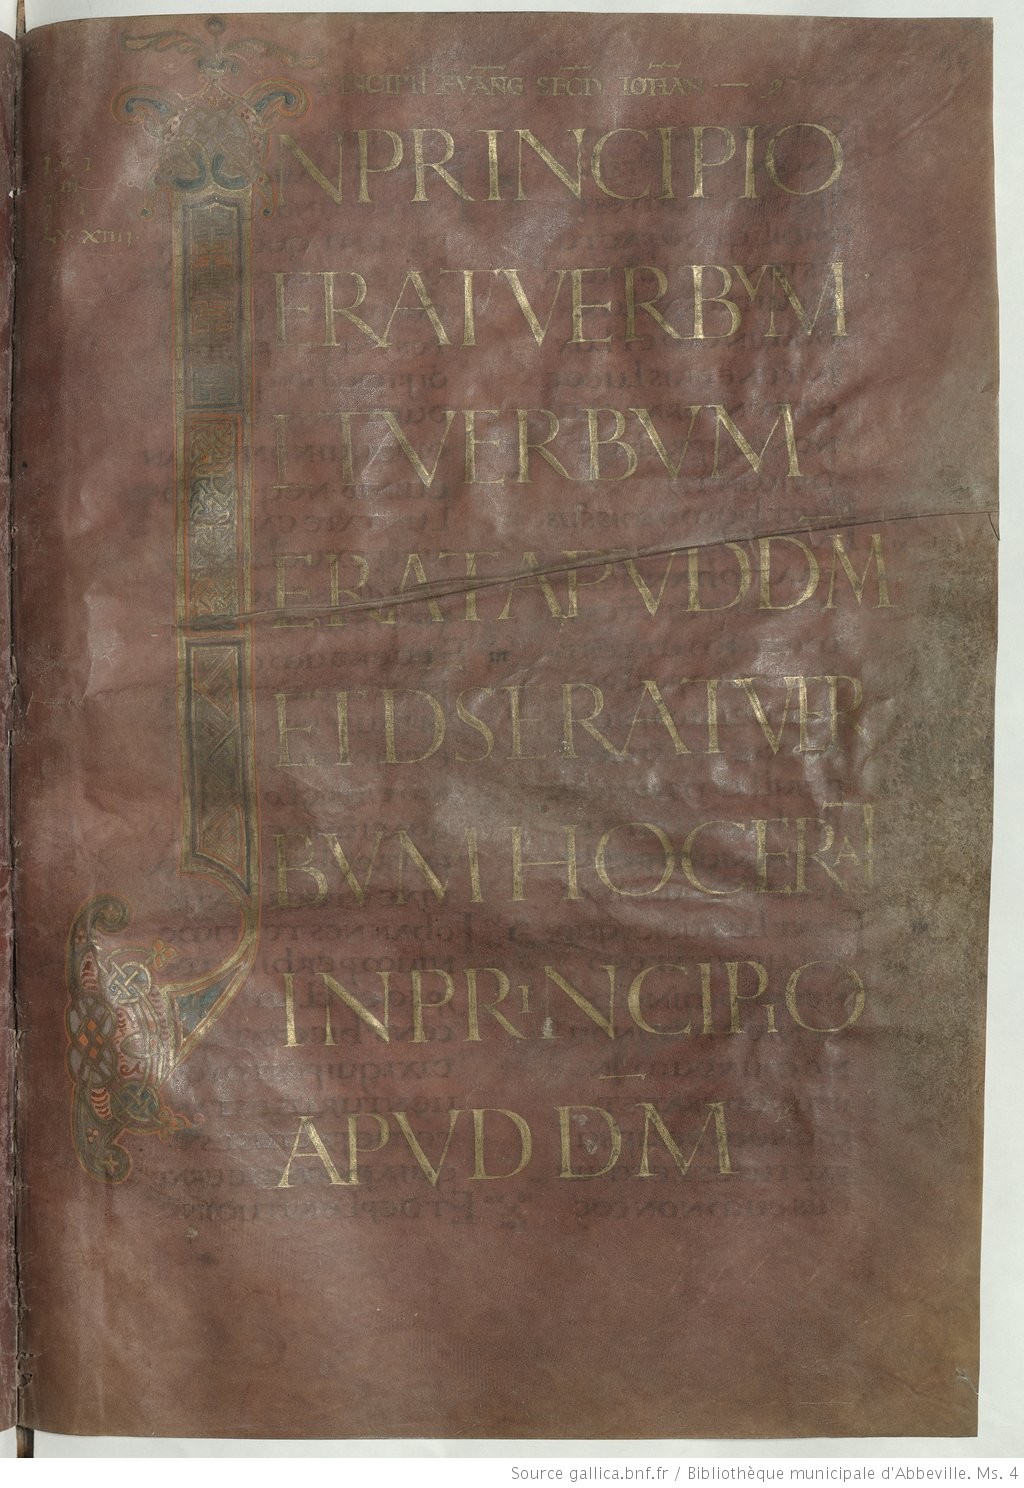 INCIPIT EVANG SECD IOHAN
INPRINCIPIO
ERATVERBVM
ETVERBVM
ERATAPVDDM
ETDSERATVER
BVMHOCERAT
INPRINCIPIO
APVDDM
Source gallica.bnf.fr / Bibliothèque municipale d'Abbeville. Ms. 4